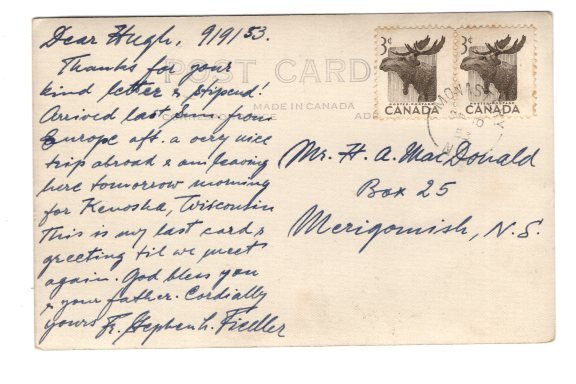 Dear Hugh, 9/9/53.
Thanks for your
kind letter & stipend!
Arrived last Sun. from
Europe aft. a very nice
trip abroad & am leaving
here tomorrow morning
for Kenosha, Wisconsin
This is my last card &
greeting til we meet
again. God bless you
& your father. Cordially
yours Fr. Stephen L. Fiedler
POST CARD
MADE IN CANADA
3¢
CANADA
3¢
CANADA
Mr. H. A. MacDonald
Box 25
Merigomish, N.S.